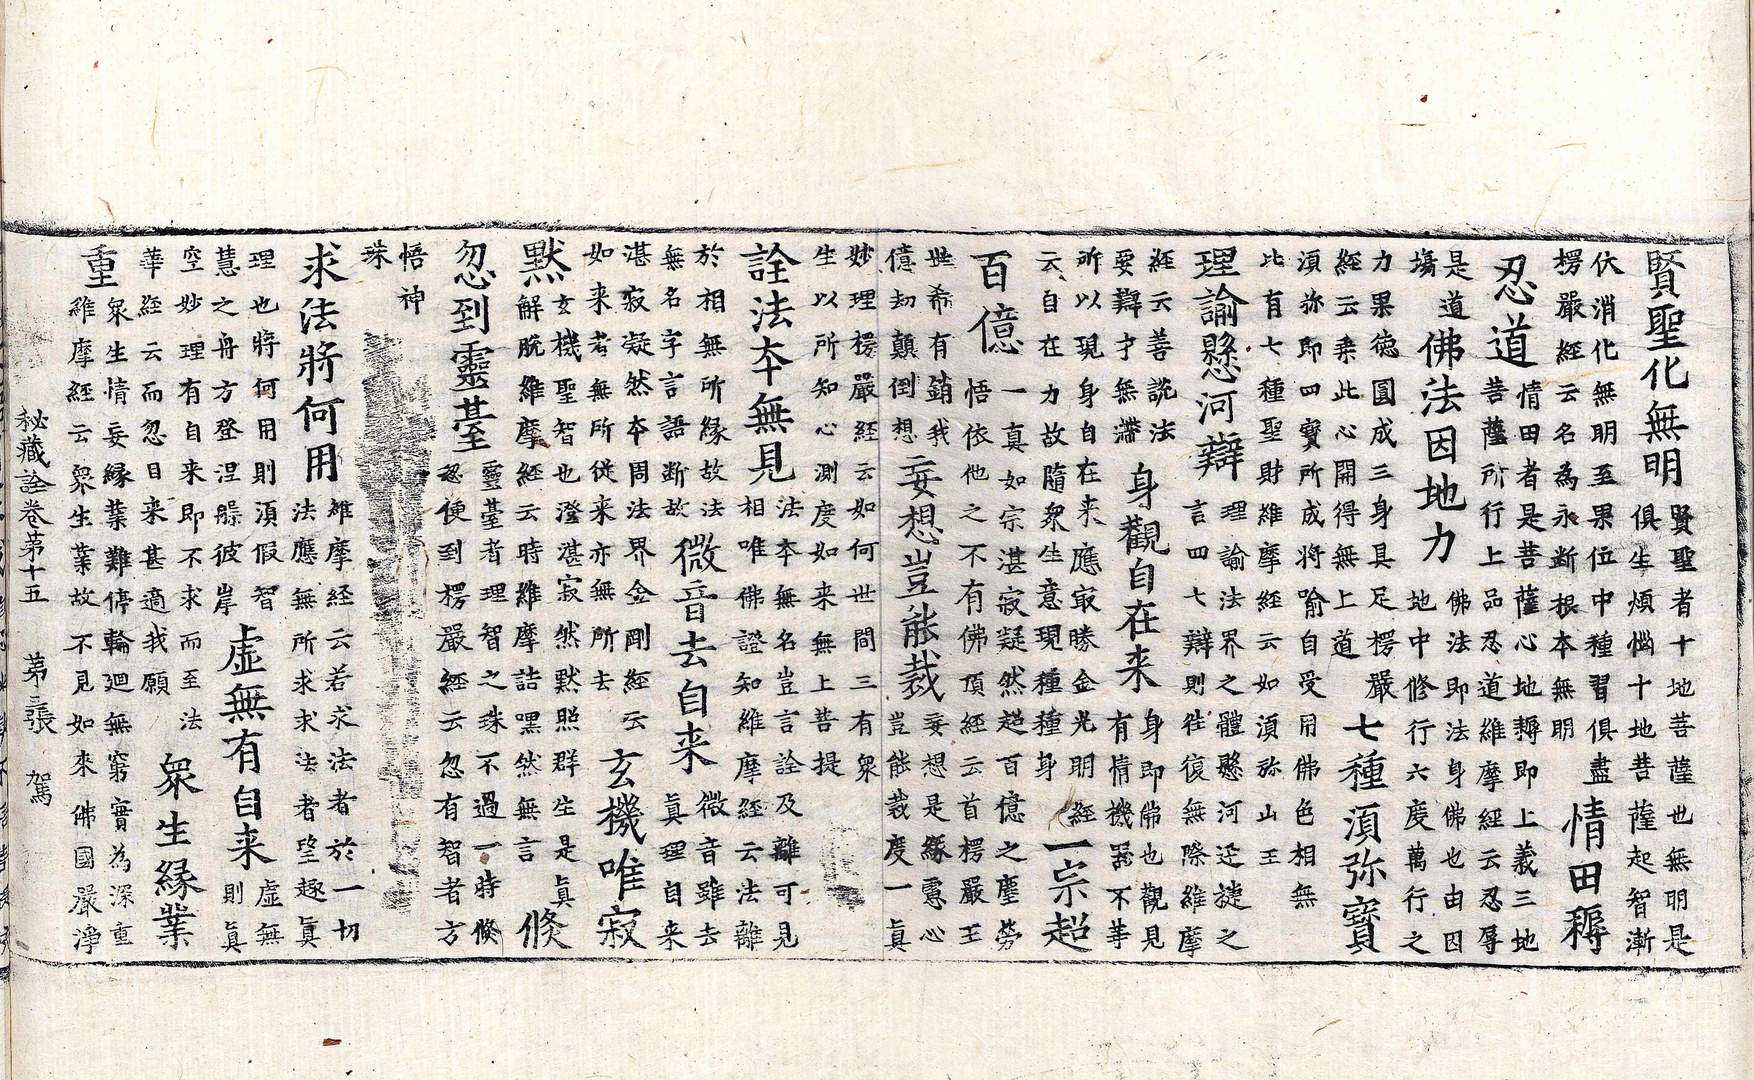 賢聖化無明
賢聖者十地菩薩也無明是
俱生煩惱十地菩薩起智漸
伏消化無明至果位中種習俱盡
楞嚴經云名為永断根本無明
情田耨
忍道
情田者是菩薩心地耨即上義三地
菩薩所行上品忍道維摩經云忍辱
是道
場
佛法因地力
佛法即法身佛也由因
地中修行六度萬行之
力果德圓成三身具足楞嚴
經云乘此心開得無上道
七種須弥寳
須弥即四寳所成將喻自受用佛色相無
比有七種聖財維摩經云如須弥山王
理諭懸河辯
理諭法界之體懸河迅捷之
言四七辯則往復無際維摩
經云善說法
要辯才無滯
身觀自在来
身即常也觀見
有情機器不等
所以現身自在来應冣勝金光明經
云自在力故隨衆生意現種種身
一宗超
百億
一真如宗湛寂疑然超百億之塵勞
悟依他之不有佛頂經云首楞嚴王
世希有銷我
億劫顛倒想
妄想豈能裁
妄想是緣慮心
豈能裁度一真
妙理楞嚴經云如何世間三有衆
生以所知心測度如来無上菩提
詮法本無見
法本無名豈言詮及離可見
相唯佛證知維摩經云法離
於相無所緣故法
無名字言語断故
微音去自来
微音雖去
真理自来
湛寂凝然本周法界金剛經云
如来者無所從来亦無所去
玄機唯寂
默
玄機聖智也澄湛寂然默照群生是真
解脫維摩經云時維摩詰默然無言
倏
忽到靈臺
靈臺者理智之珠不過一時倏
忽便到楞嚴經云忽有智者方
悟神
珠
求法將何用
維摩経云若求法者於一切
法應無所求求法者望趣真
理也將何用則須假智
慧之舟方登涅槃彼岸
虛無有自来
虛無
則真
空妙理有自来即不求而至法
華經云而忽自来甚適我願
衆生緣業
重
衆生情妄緣業難停輪廻無窮實為深重
維摩經云衆生業故不見如來佛國嚴淨
秘藏詮卷第十五 第三張 駕